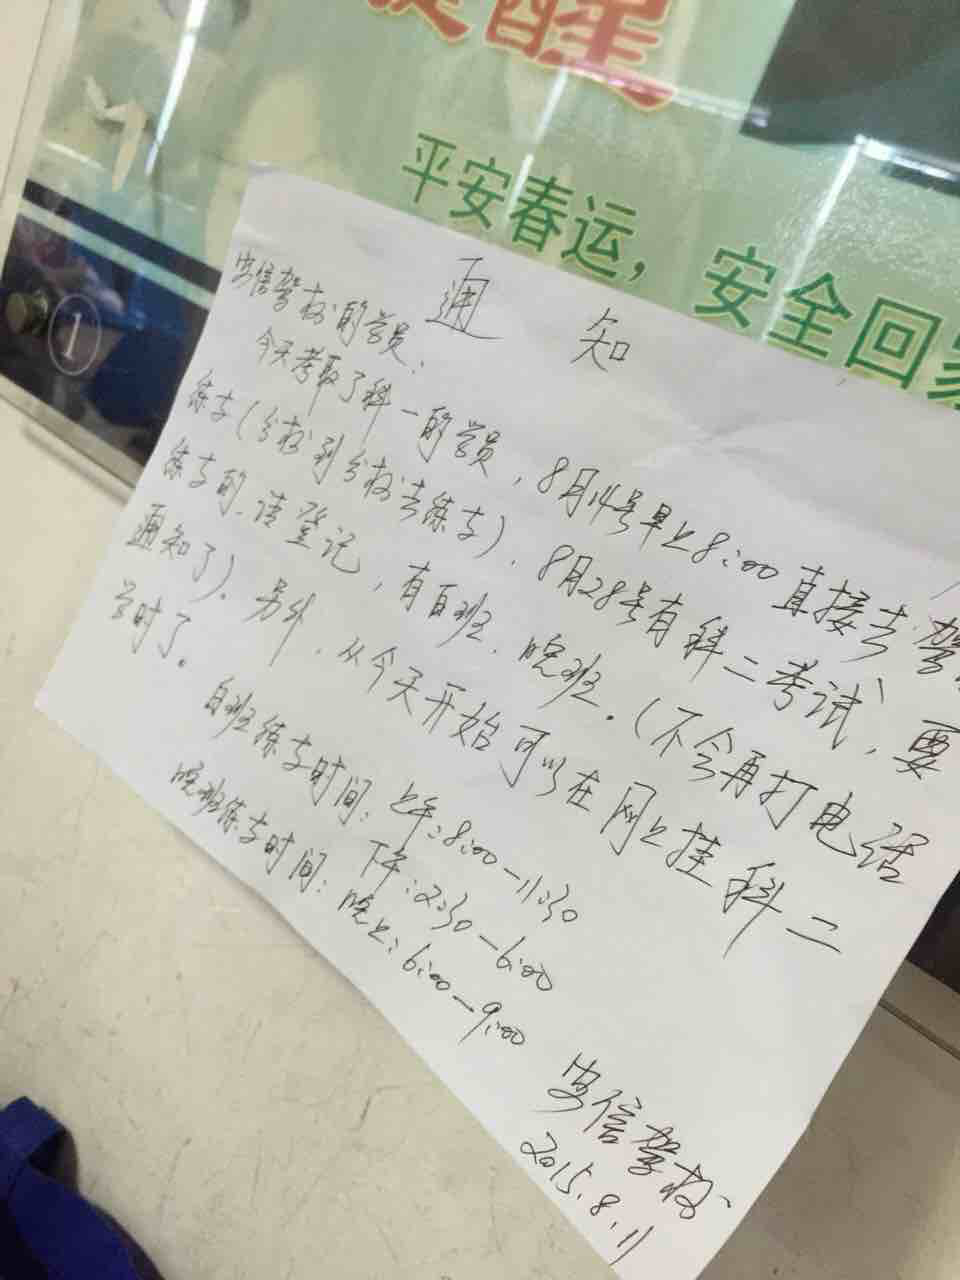 提醒
平安春运，安全回家
1
通 知
安信驾校的学员：
今天考取了科一的学员，8月14号早上8:00直接去驾
练车（分校到分校去练车），8月28号有科二考试，要
练车的，请登记，有白班，晚班。（不会再打电话
通知了）。另外，从今天开始可以在网上挂科二
学时了。
白班练车时间：上午：8:00—11:30
下午：2:30—6:00
晚班练车时间：晚上：6:00—9:00
安信驾校
2015.8.11